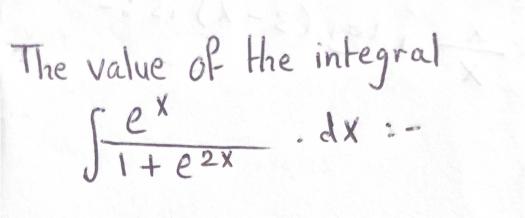 The value of the integral
∫ e^x / (1 + e^2x) . dx :-